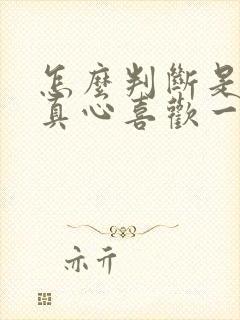 怎麼判斷是
真心喜歡一
亦亓